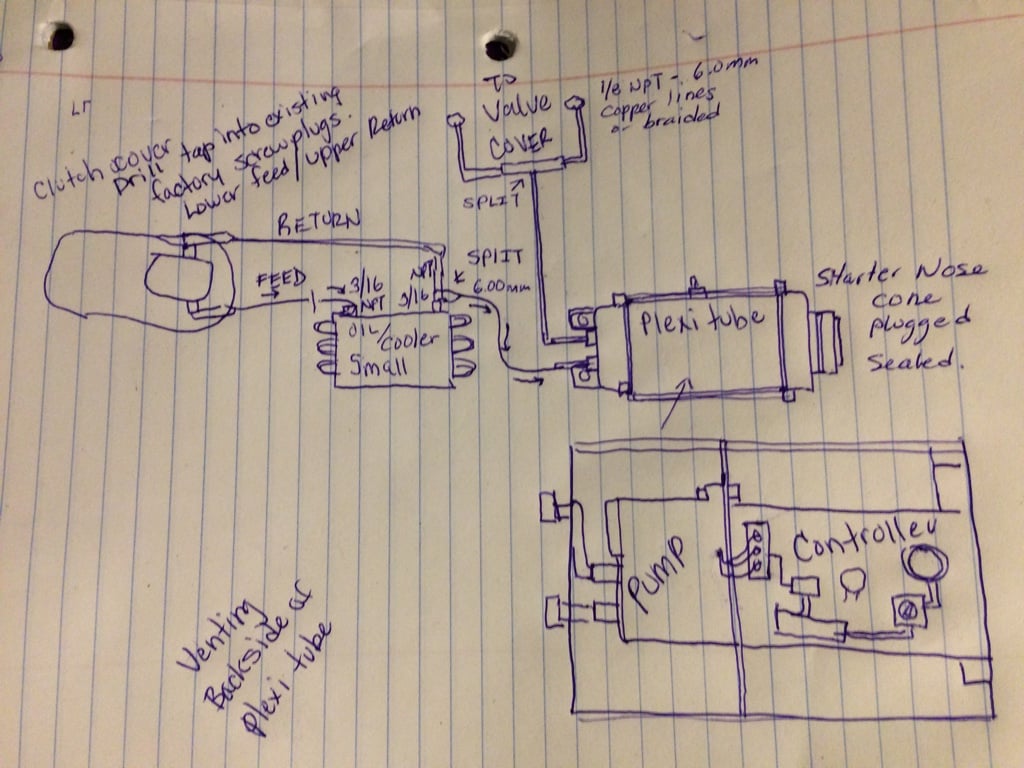 Clutch cover
Drill tap into existing
factory screw plugs.
Lower feed / upper Return
TO
Valve
COVER
1/8 NPT - 6.0mm
copper lines
or braided
SPLIT
RETURN
FEED
3/16
NPT
NPT
3/16
SPLIT
6.00mm
OIL/Cooler
Small
Plexi tube
Starter Nose
cone
plugged
Sealed.
PUMP
Controller
Venting
Backside of
plexi tube